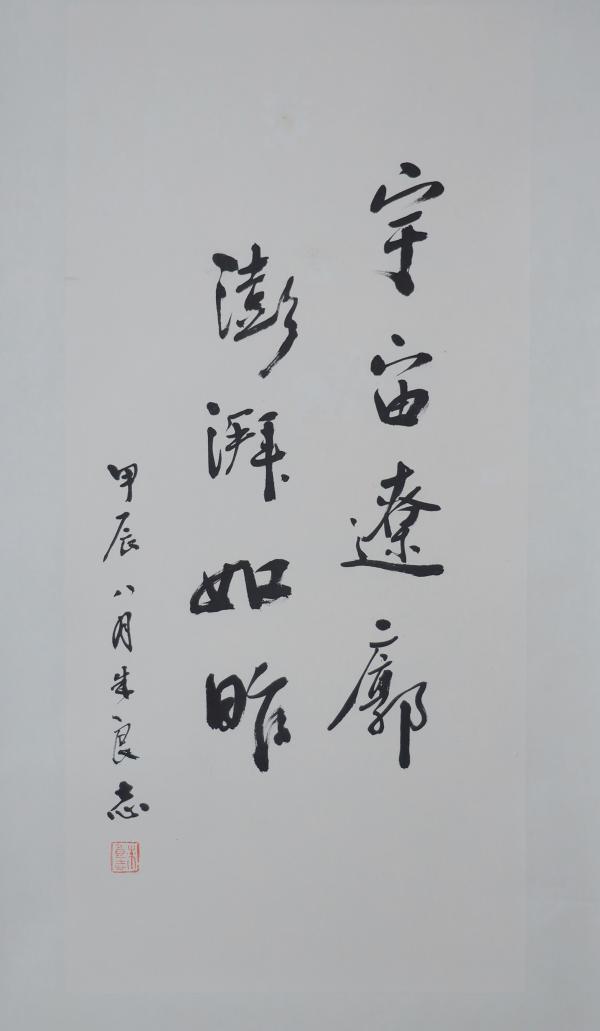 宇宙遼廓
澎湃如昨
甲辰八月朱良志
朱良志